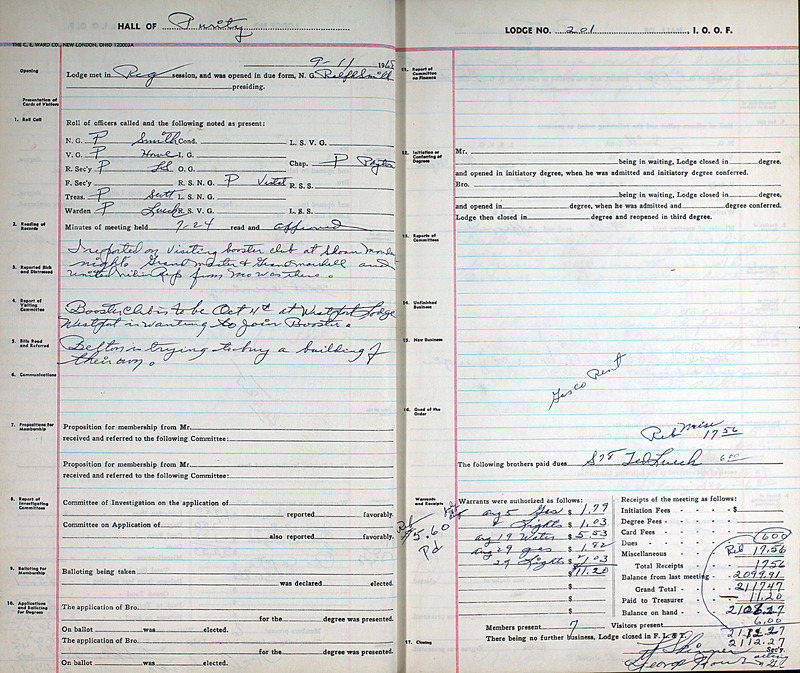 HALL OF Purity
THE C. E. WARD CO., NEW LONDON, OHIO 120003A
9-11 1968
Opening
Lodge met in Reg session, and was opened in due form, N. G. Ralph Smith
presiding.
Presentation of Cards of Visitors
1. Roll Call
Roll of officers called and the following noted as present:
N. G. P Smith Cond. L. S. V. G.
V. G. P Howe I. G. Chap. P
R. Sec'y P O. G.
F. Sec'y R. S. N. G. P R. S. S.
Treas. P Scott L. S. N. G.
Warden P Luech R. S. V. G. L. S. S.
2. Reading of Records
Minutes of meeting held 7-24 read and approved
I reported on visiting booster club at
nights Grand master & Grand marshell and
from mo was there.
3. Reported Sick and Distressed
4. Report of Visiting Committee
Booster Club is to be Oct 4th at Westport Lodge
Westport is wanting to join Booster.
5. Bills Read and Referred
is trying to buy a building of
their own.
6. Communications
7. Propositions for Membership
Proposition for membership from Mr.
received and referred to the following Committee:
Proposition for membership from Mr.
received and referred to the following Committee:
8. Report of Investigating Committees
Committee of Investigation on the application of
reported favorably.
Committee on Application of
also reported favorably.
9. Balloting for Membership
Balloting being taken
was declared elected.
10. Applications and Balloting for Degrees
The application of Bro.
for the degree was presented.
On ballot was elected.
The application of Bro.
for the degree was presented.
On ballot was elected.
LODGE NO. 201, I. O. O. F.
11. Report of Committee on Finance
12. Initiation or Conferring of Degrees
Mr.
being in waiting, Lodge closed in degree,
and opened in initiatory degree, when he was admitted and initiatory degree conferred.
Bro.
being in waiting, Lodge closed in degree,
and opened in degree, when he was admitted and degree conferred.
Lodge then closed in degree and reopened in third degree.
13. Reports of Committees
14. Unfinished Business
15. New Business
Rent
16. Good of the Order
Reb Misc
17.56
The following brothers paid dues Ted Luech 6.00
Warrants and Receipts
Reb
15.60
Pd
Warrants were authorized as follows:
Aug 5 Gas $ 1.79
& Lights $ 1.03
Aug 19 Water $ 5.53
Aug 29 gas $ 1.82
29 Lights $ 1.03
$ 11.20
$
$
$
Receipts of the meeting as follows:
Initiation Fees - $
Degree Fees
Card Fees
Dues 6.00
Miscellaneous Reb 17.56
Total Receipts 17.56
Balance from last meeting 2099.91
Grand Total 2117.47
Paid to Treasurer 11.20
Balance on hand 2106.27
6.00
2112.27
2112.27
Members present 7 Visitors present
17. Closing
There being no further business, Lodge closed in F. L. & T.
Sec'y
acting
George